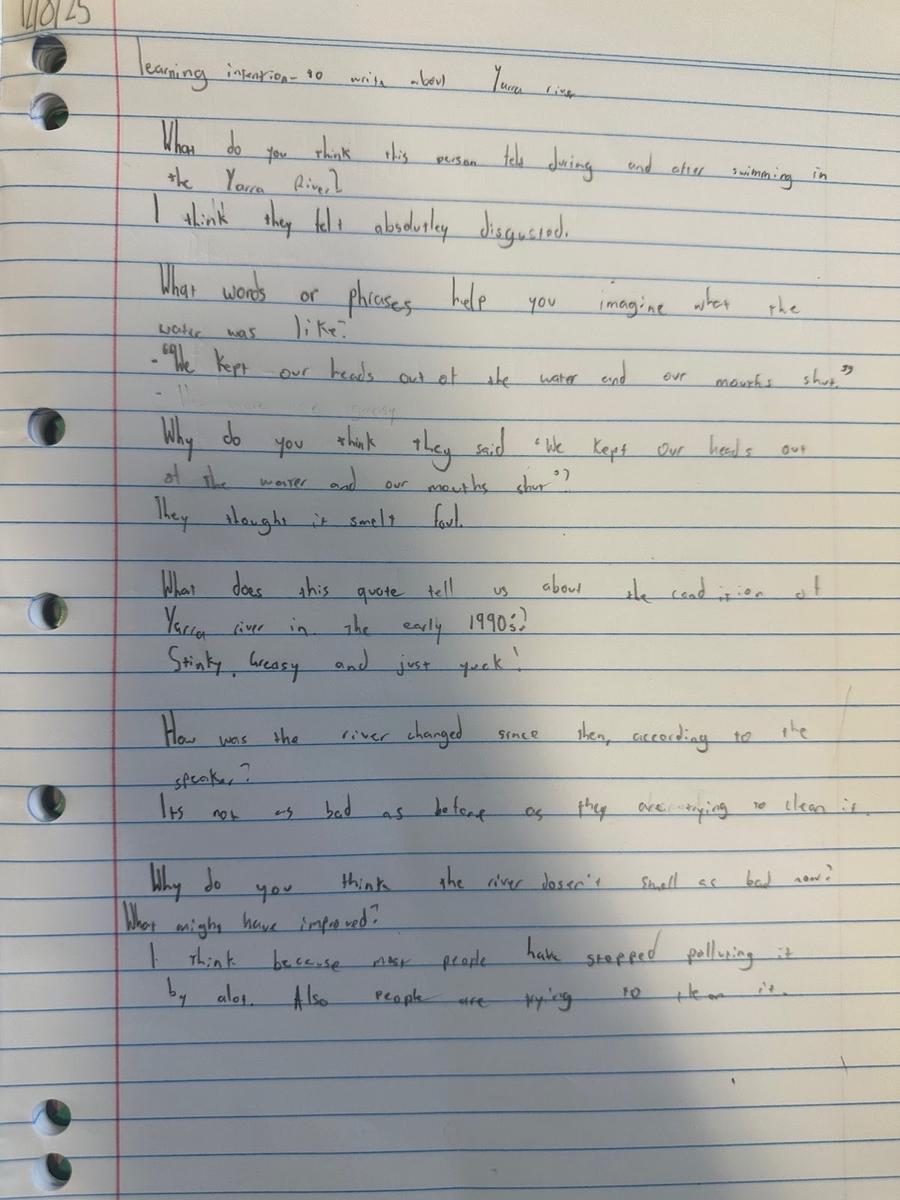 12/8/25
learning intention- to write about Yarra river
What do you think this person felt during and after swimming in
the Yarra River?
I think they felt absolutley disgusted.
What words or phrases help you imagine what the
water was like?
- "We kept our heads out of the water and our mouths shut."
-
Why do you think they said "We kept our heads out
of the water and our mouths shut"?
They thought it smelt foul.
What does this quote tell us about the condition of
Yarra river in the early 1990s?
Stinky, Greasy and just yuck!
How was the river changed since then, according to the
speaker?
Its not as bad as before as they are trying to clean it.
Why do you think the river dosen't smell as bad now?
What might have improved?
I think because most people have stopped polluting it
by alot. Also people are trying to clean it.